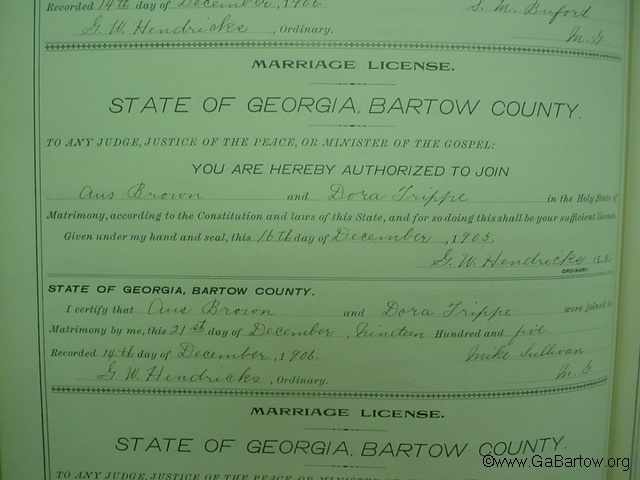 Recorded 14th day of December, 1906. S. M. Buford
G. W. Hendricks, Ordinary. M. G
MARRIAGE LICENSE.
STATE OF GEORGIA, BARTOW COUNTY.
TO ANY JUDGE, JUSTICE OF THE PEACE, OR MINISTER OF THE GOSPEL:
YOU ARE HEREBY AUTHORIZED TO JOIN
Aus Brown and Dora Trippe in the Holy State of
Matrimony, according to the Constitution and laws of this State, and for so doing this shall be your sufficient license.
Given under my hand and seal, this 16th day of December, 1905.
G. W. Hendricks (L.S.)
ORDINARY.
STATE OF GEORGIA, BARTOW COUNTY.
I certify that Aus Brown and Dora Trippe were joined in
Matrimony by me, this 21st day of December, Nineteen Hundred and five
Recorded 14th day of December, 1906. Mike Sullivan
G. W. Hendricks, Ordinary. M. G
MARRIAGE LICENSE.
STATE OF GEORGIA, BARTOW COUNTY.
TO ANY JUDGE, JUSTICE OF THE PEACE, OR MINISTER OF THE GOSPEL:
©www.GaBartow.org